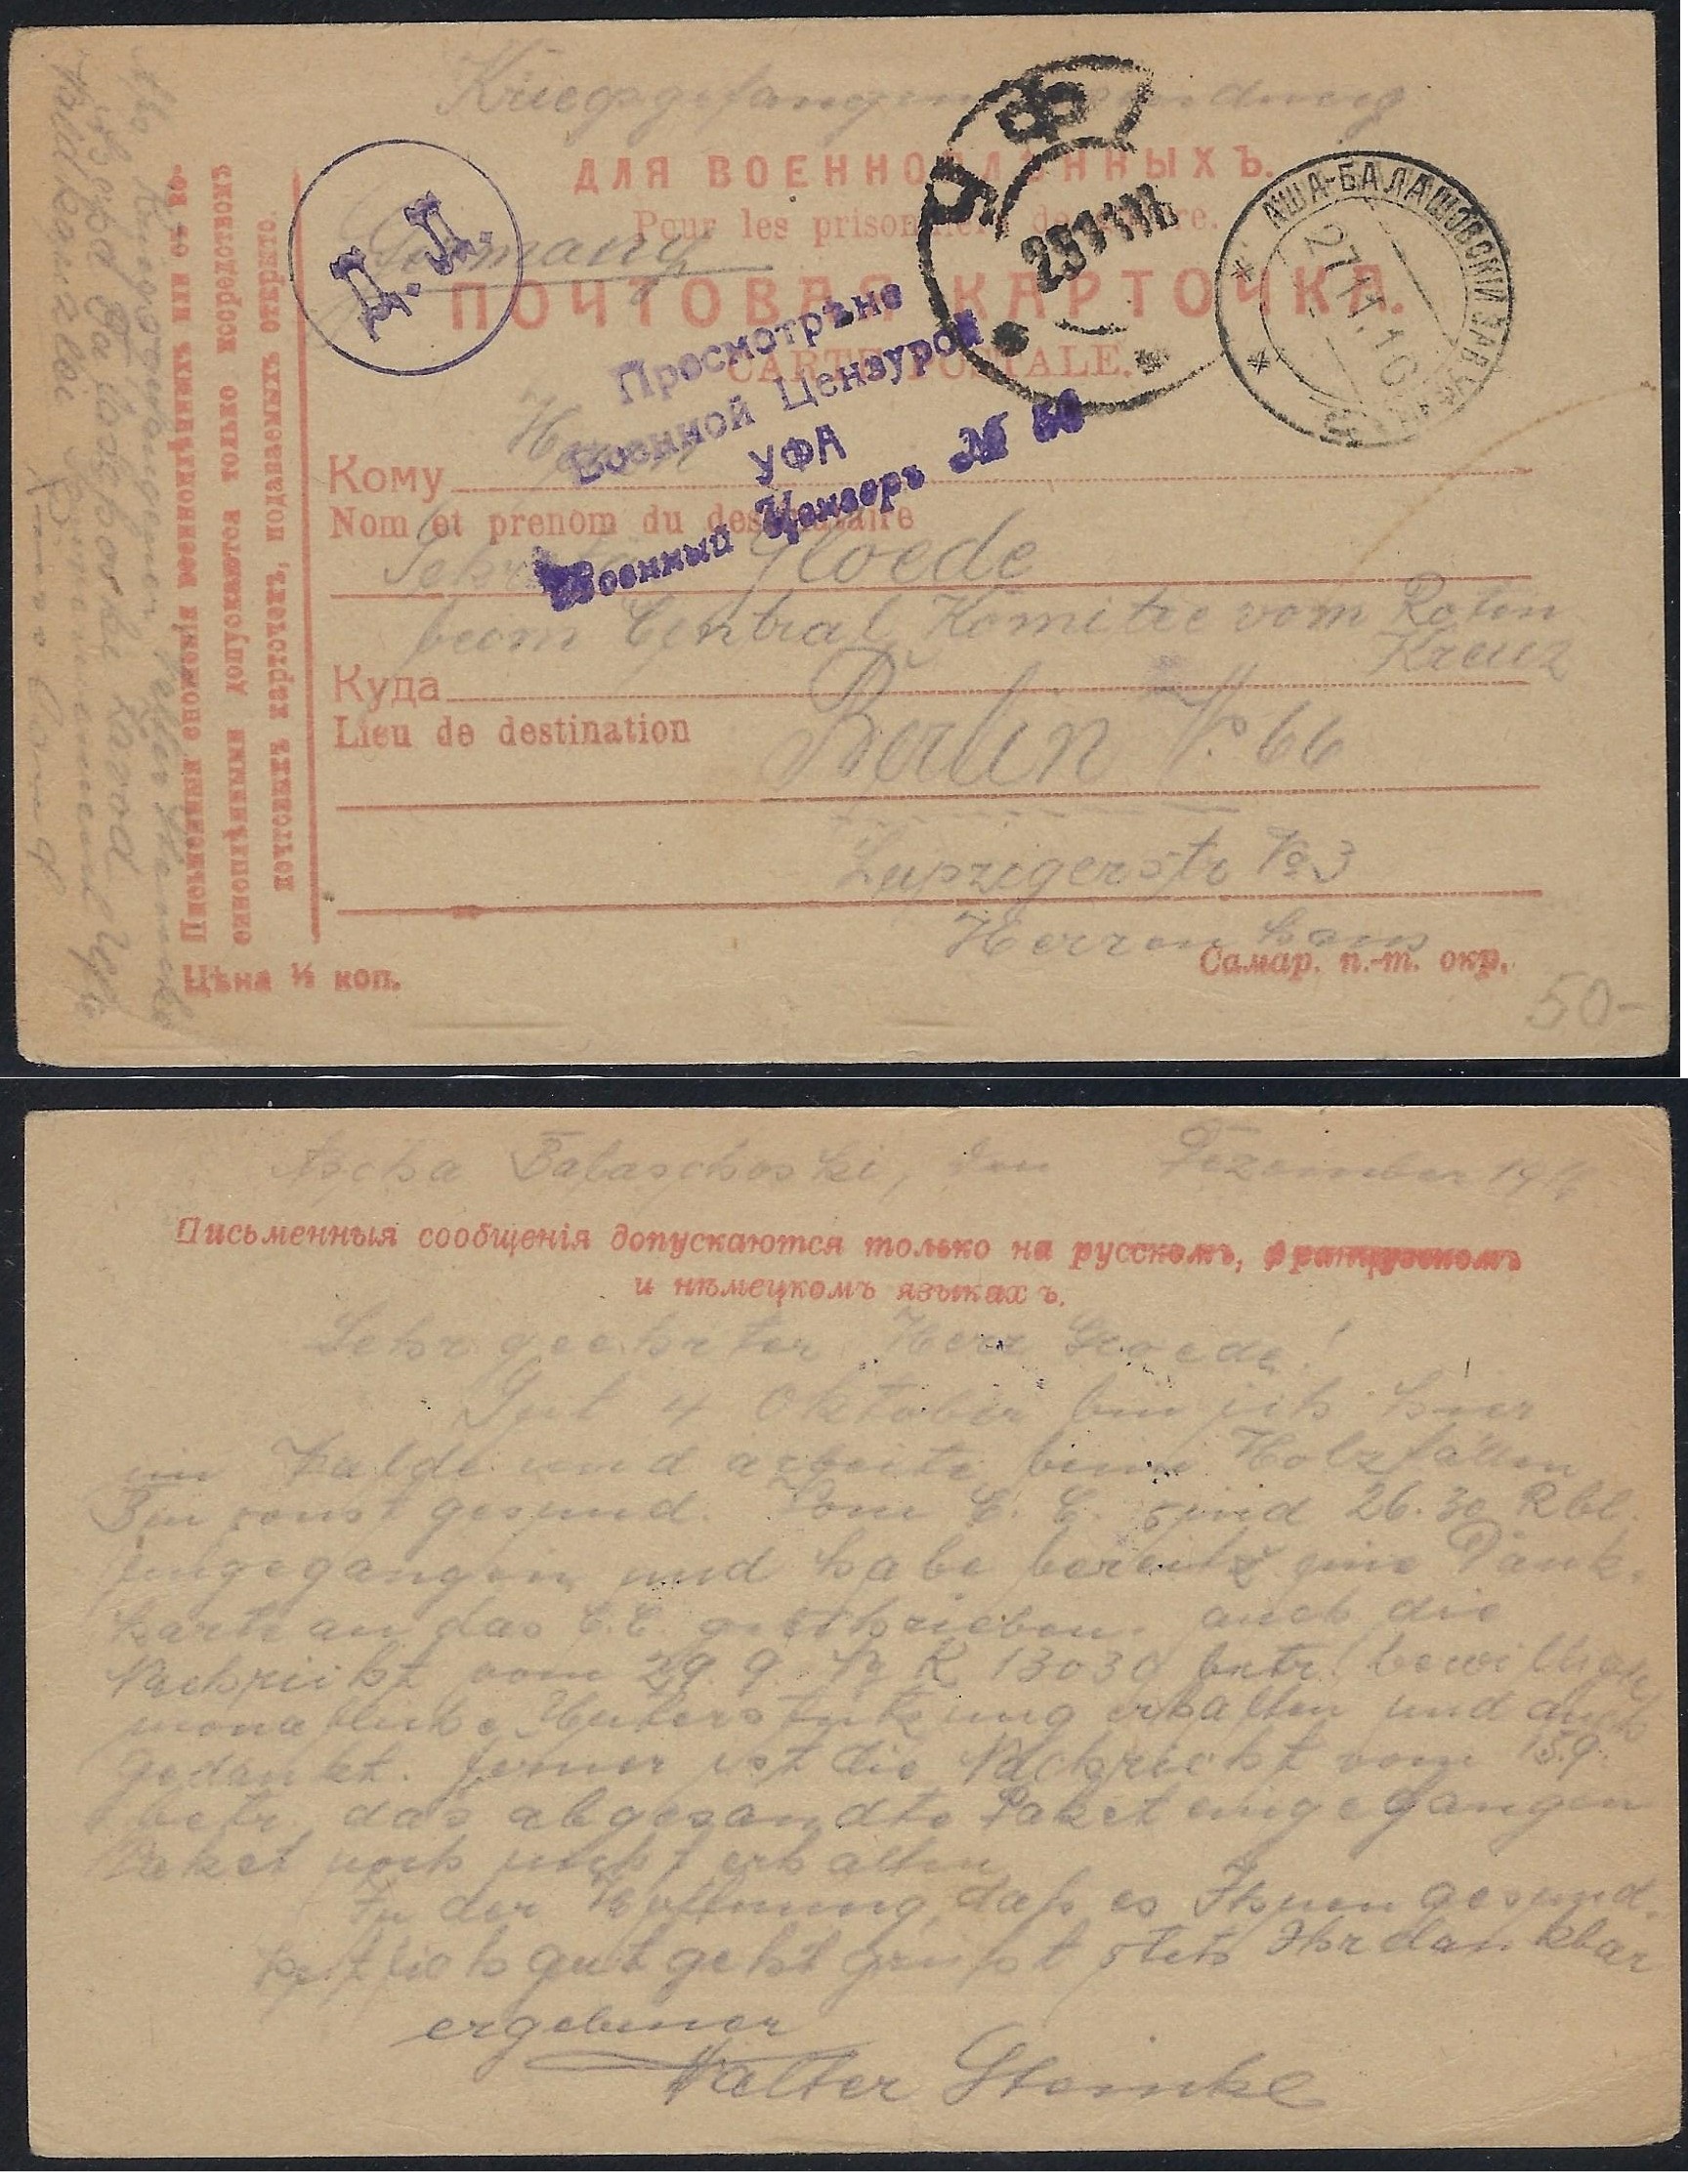 Kriegsgefangenensendung
ДЛЯ ВОЕННОПЛѢННЫХЪ.
Pour les prisonniers de guerre.
Germany
ПОЧТОВАЯ КАРТОЧКА.
CARTE POSTALE.
Д. Д.
УФА
АША-БАЛАШОВСКИ ЗАВ.
27.11.16
Просмотрѣно
Военной Цензурой
УФА
Военный Цензоръ № 50
Herrn
Кому
Nom et prenom du destinataire
Sekretär Gloede
beim Central Komitee vom Roten
Kreuz
Куда
Lieu de destination
Berlin
66
Leipzigerstr № 3
Herrenhaus
Самар. п.-т. окр.
Цѣна ½ коп.
50-
Письменныя сношенія военноплѣнныхъ или съ во-
еноплѣнными допускаются только посредствомъ
почтовыхъ карточекъ, подаваемыхъ открыто.
Abs. Kriegsgefangener Walter Steinke
Ascha Balaschoski, den Dezember 1916
Письменныя сообщенія допускаются только на русскомъ, французскомъ
и нѣмецкомъ языкахъ.
Sehr geehrter Herr Gloede!
Seit 4 Oktober bin ich hier
im Walde und arbeite beim Holzfällen
Bin sonst gesund. Vom C. C. sind 26.30 Rbl.
eingegangen und habe bereits eine Dank-
karte an das C.C. geschrieben. auch die
Nachricht vom 29.9. K 13030 betr. bewilligte
monatliche Unterstützung erhalten und auch
gedankt. ferner ist die Nachricht vom 15.9.
betr. das abgesandte Paket eingegangen
Paket noch nicht erhalten
In der Hoffnung, daß es Ihnen gesund-
heitlich gut geht grüßt stets Ihr dankbar
ergebener
Walter Steinke